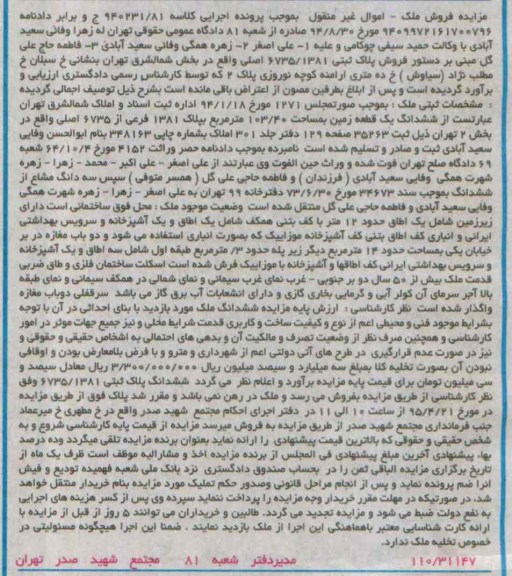 مزایده فروش ملک - اموال غیر منقول بموجب پرونده اجرایی کلاسه ۹۴۰۲۳۱/۸۱ ج و برابر دادنامه
۹۴۰۹۹۷۲۱۶۱۷۰۰۷۹۶ مورخ ۹۴/۸/۳۰ صادره از شعبه ۸۱ دادگاه عمومی حقوقی تهران له زهرا وفائی سعید
آبادی با وکالت حمید سیفی چوکامی و علیه ۱- علی اصغر ۲- زهره همگی وفائی سعید آبادی ۳- فاطمه حاج علی
گل مبنی بر دستور فروش پلاک ثبتی ۶۷۳۵/۱۳۸۱ اصلی واقع در بخش شمالشرق تهران بنشانی خ سبلان خ
مطلب نژاد (سیاوش) خ ده متری ارامنه کوچه نوروزی پلاک ۲ که توسط کارشناس رسمی دادگستری ارزیابی و
برآورد گردیده است و پس از ابلاغ بطرفین مصون از اعتراض باقی مانده است بشرح ذیل توصیف اجمالی گردیده
: مشخصات ثبتی ملک : بموجب صورتمجلس ۱۲۷۱ مورخ ۹۴/۱۱/۱۸ اداره ثبت اسناد و املاک شمالشرق تهران
عبارتست از ششدانگ یک قطعه زمین بمساحت ۱۰۳/۴۰ مترمربع بپلاک ۱۳۸۱ فرعی از ۶۷۳۵ اصلی واقع در
بخش ۲ تهران ذیل ثبت ۳۵۲۶۳ صفحه ۱۲۹ دفتر جلد ۳۰۱ املاک بشماره چاپی ۳۴۸۱۶۳ بنام ابوالحسن وفایی
سعید آبادی ثبت و صادر و تسلیم شده است نامبرده بموجب دادنامه حصر وراثت ۴۱۵۲ مورخ ۶۴/۱۰/۴ شعبه
۶۹ دادگاه صلح تهران فوت شده و وراث حین الفوت وی عبارتند از علی اصغر - علی اکبر - محمد - زهرا - زهره
شهرت همگی وفایی سعید آبادی (فرزندان) و فاطمه حاجی علی گل (همسر متوفی) سپس سه دانگ مشاع از
ششدانگ بموجب سند ۳۴۶۷۳ مورخ ۷۳/۶/۳۰ دفترخانه ۹۹ تهران به علی اصغر - زهرا - زهره شهرت همگی
وفایی سعید آبادی و فاطمه حاجی علی گل منتقل شده است وضعیت موجود ملک : محل فوق ساختمانی است دارای
زیرزمین شامل یک اطاق حدود ۱۲ متر با کف بتنی همکف شامل یک اطاق و یک آشپزخانه و سرویس بهداشتی
ایرانی و انباری کف اطاق بتنی کف آشپزخانه موزاییک که بصورت انباری استفاده می شود و دو باب مغازه در بر
خیابان یکی بمساحت حدود ۱۴ مترمربع دیگر زیر پله حدود ۳/ مترمربع طبقه اول شامل سه اطاق و یک آشپزخانه
و سرویس بهداشتی ایرانی کف اطاقها و آشپزخانه با موزاییک فرش شده است اسکلت ساختمان فلزی و طاق ضربی
قدمت ملک بیش از ۵۰ سال دو بر جنوبی - غرب نمای غرب سیمانی و نمای شمالی در همکف سیمانی و نمای طبقه
بالا آجر سرمای آن کولر آبی و گرمایی بخاری گازی و دارای انشعابات آب برق گاز می باشد سرقفلی دوباب مغازه
واگذار شده است نظر کارشناسی : ارزش پایه مزایده ششدانگ ملک مورد بازدید با بنای احداثی در آن با توجه
بشرایط موجود فنی و محیطی اعم از نوع و کیفیت ساخت و کاربری قدمت شرایط محلی و نیز جمیع جهات موثر در امور
کارشناسی و همچنین صرف نظر از وضعیت تصرف و مالکیت آن و بدهی های احتمالی به اشخاص حقیقی و حقوقی و
نیز در صورت عدم قرارگیری در طرح های آتی دولتی اعم از شهرداری و مترو و با فرض بلامعارض بودن و اوقافی
نبودن آن بصورت تخلیه کلا بمبلغ سه میلیارد و سیصد میلیون ریال ۳/۳۰۰/۰۰۰/۰۰۰ ریال معادل سیصد و
سی میلیون تومان برای قیمت پایه مزایده برآورد و اعلام نظر می گردد ششدانگ پلاک ثبتی ۶۷۳۵/۱۳۸۱ وفق
نظر کارشناسی از طریق مزایده بفروش می رسد و ملک در رهن نمی باشد و مقرر شد پلاک فوق از طریق مزایده
در مورخ ۹۵/۴/۲۱ از ساعت ۱۰ الی ۱۱ در دفتر اجرای احکام مجتمع شهید صدر واقع در خ مطهری خ میرعماد
جنب فرمانداری مجتمع شهید صدر از طریق مزایده به فروش میرسد مزایده از قیمت پایه کارشناسی شروع و به
شخص حقیقی و حقوقی که بالاترین قیمت پیشنهادی را ارائه نماید بعنوان برنده مزایده تلقی میگردد وده درصد
بهاء پیشنهادی آخرین مبلغ پیشنهادی فی المجلس از برنده مزایده اخذ و مشارالیه موظف است ظرف یک ماه از
تاریخ برگزاری مزایده الباقی ثمن را در بحساب صندوق دادگستری نزد بانک ملی شعبه فهمیده تودیع و فیش
انرا ضم پرونده نماید و پس از انجام مراحل قانونی وصدور حکم تملیک مورد مزایده بنام خریدار منتقل خواهد
شد، در صورتیکه در مهلت مقرر خریدار وجه مزایده را پرداخت ننماید سپرده وی پس از کسر هزینه های اجرایی
به نفع دولت ضبط می شود و مزایده تجدید می گردد. طالبین و خریداران می توانند ۵ روز از قبل از مزایده با
ارائه کارت شناسایی معتبر باهماهنگی این اجرا از ملک بازدید نمایند . ضمنا این اجرا هیچگونه مسئولیتی در
خصوص تخلیه ملک ندارد.
۱۱۰/۳۱۱۴۷ مدیردفتر شعبه ۸۱ مجتمع شهید صدر تهران